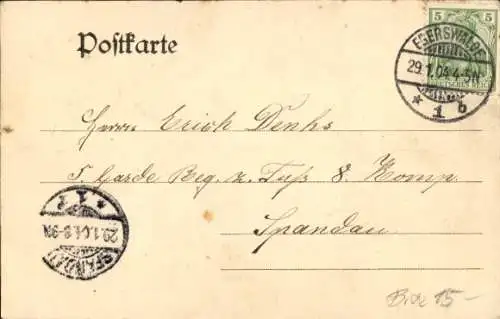 Postkarte
5
5
EBERSWALDE
29.1.04.4-5N
* 1 b
Herrn Erich Denks
5 Garde Reg. z. Fuß 8. Komp.
Spandau
SPANDAU
29.1.04.8-9N
* 1 f
15-